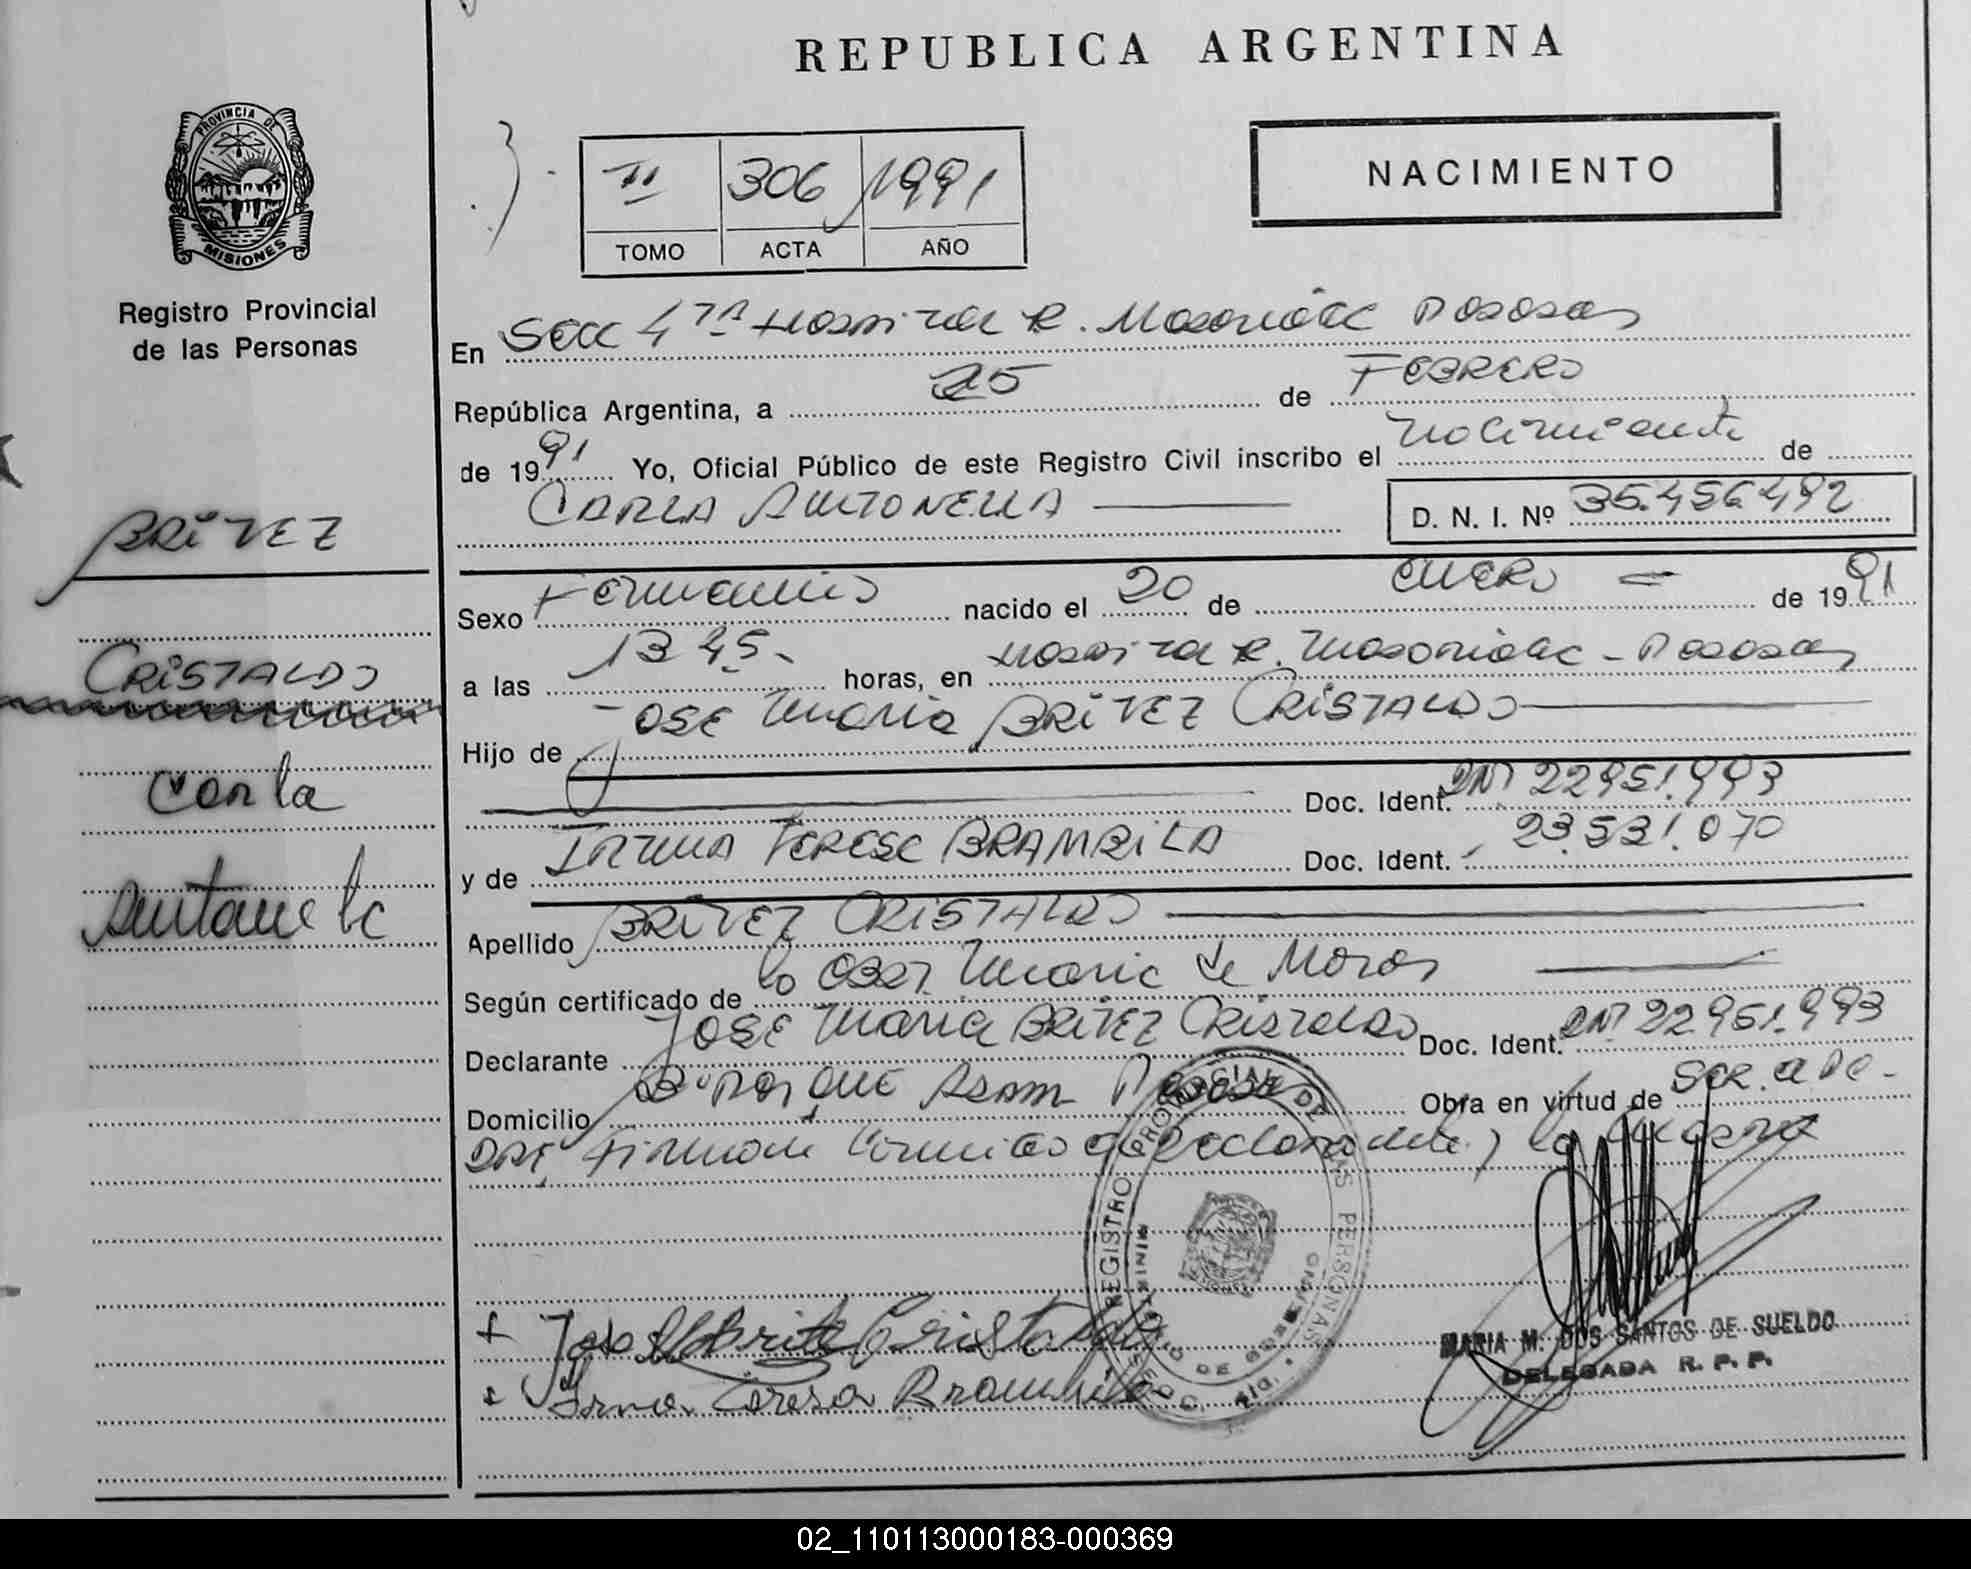 REPUBLICA ARGENTINA
PROVINCIA DE
MISIONES
Registro Provincial
de las Personas
II 306 1991
TOMO ACTA AÑO
NACIMIENTO
En Secc 4ta Hospital R. Madariaga Posadas
República Argentina, a 25 de FEBRERO
de 1991 Yo, Oficial Público de este Registro Civil inscribo el nacimiento de
CARLA ANTONELLA D. N. I. Nº 35.456.492
BRÍTEZ
CRISTALDO
Carla
Antonela
Sexo Femenino nacido el 20 de ENERO de 1991
a las 13 45 horas, en Hospital R. Madariaga - Posadas
Hijo de JOSE Maria BRÍTEZ CRISTALDO
Doc. Ident. DNI 22951.993
y de IRMA TERESA BRAMBILA Doc. Ident. 23.531.070
Apellido BRÍTEZ CRISTALDO
Según certificado de la Obst. Maria de
Declarante JOSE Maria BRITEZ CRISTALDO Doc. Ident. DNI 22951.993
Domicilio B° Parque Adam Posadas Obra en virtud de ser el Pa-
dre, Firman el Declarante y la
REGISTRO PROVINCIAL DE LAS PERSONAS
Jose M Britez Cristaldo
Irma Teresa Brambila
MARIA M. DOS SANTOS DE SUELDO
DELEGADA R. P. P.
02_110113000183-000369